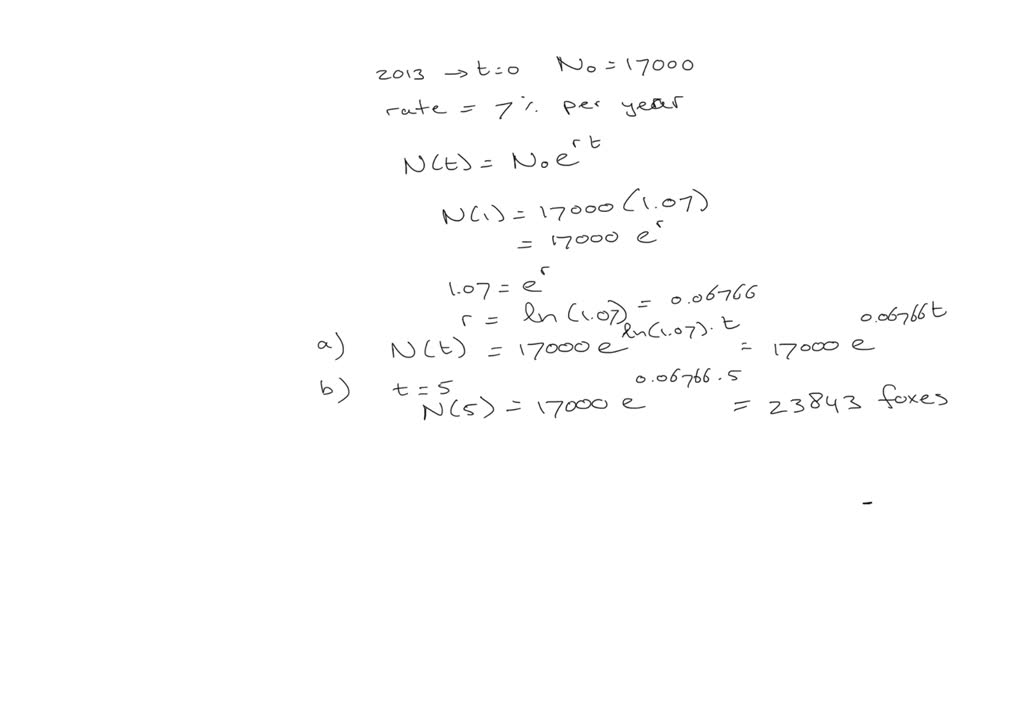 2013 → t=0 N₀ = 17000
rate = 7% per year
N(t) = N₀e^rt
N(1) = 17000(1.07)
= 17000 e^r
1.07 = e^r
r = ln(1.07) = 0.06766
a) N(t) = 17000 e^ln(1.07)·t = 17000 e^0.06766t
b) t=5
N(5) = 17000 e^0.06766·5 = 23843 foxes